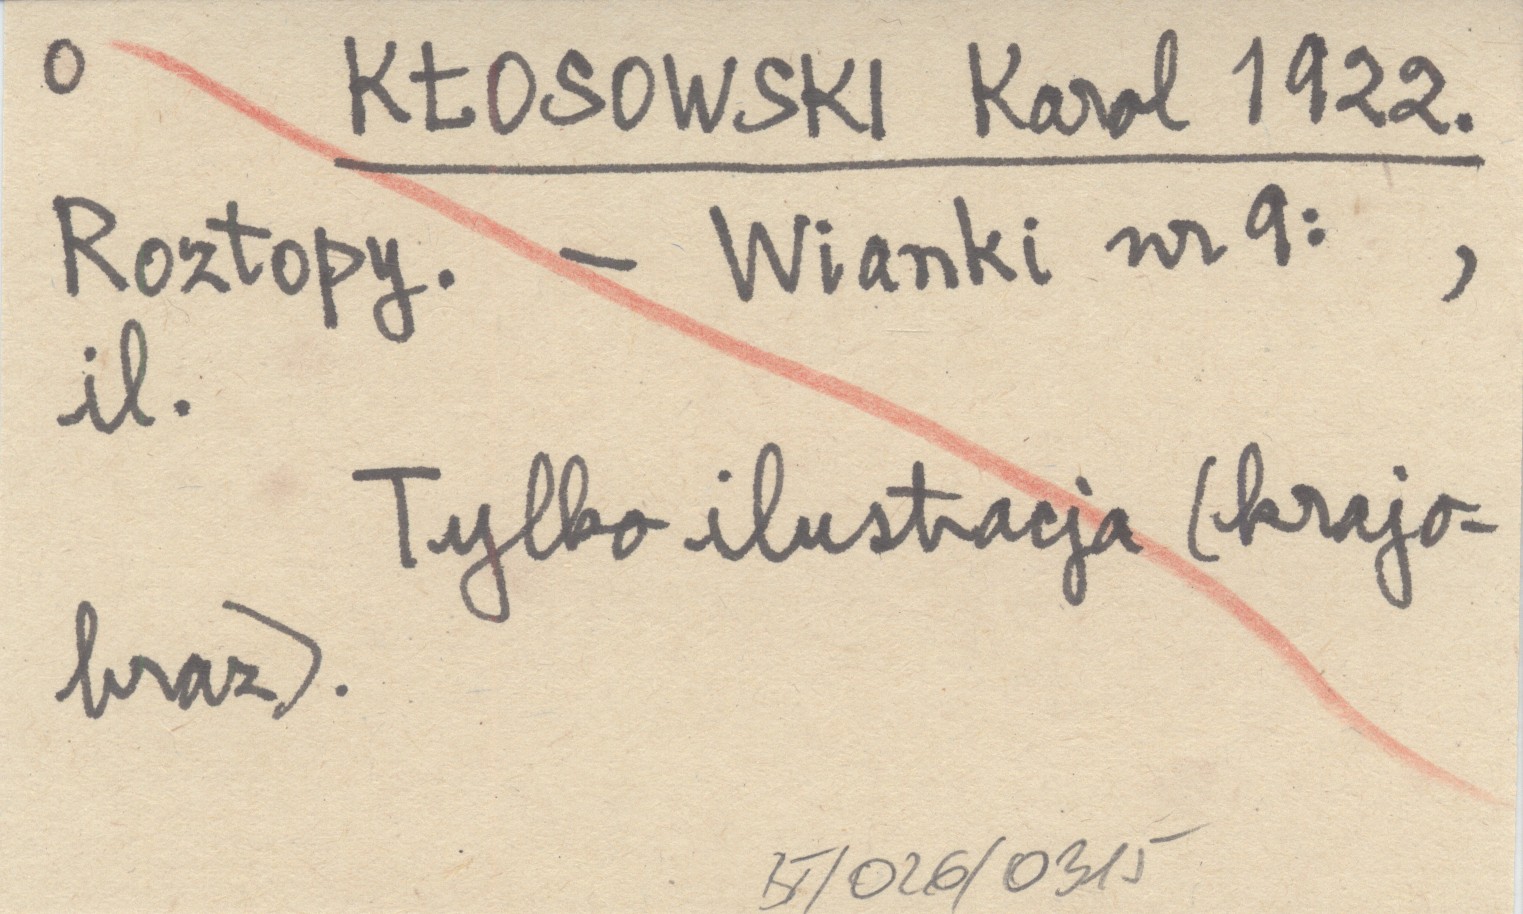 O KŁOSOWSKI Karol 1922.
Roztopy. – Wianki nr 9: ,
il.
Tylko ilustracja (krajo-
braz).
/026/0315